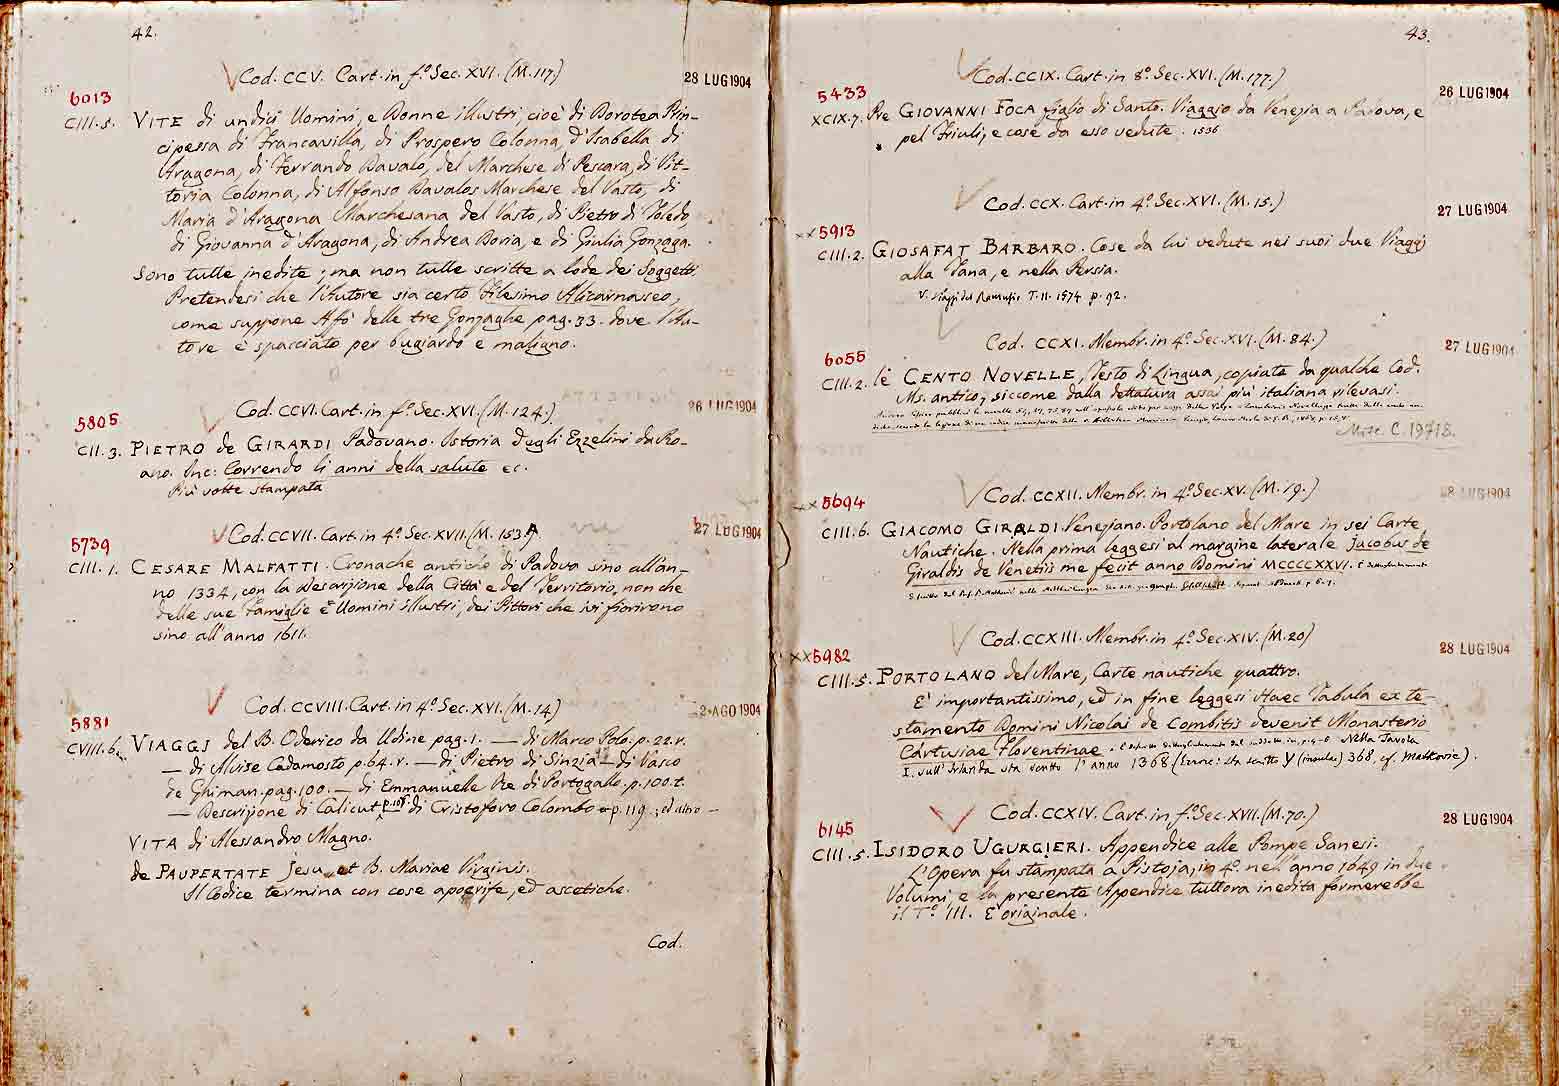 42.
Cod. CCV. Cart. in f.º Sec. XVI. (M. 117.)
28 LUG 1904
6013
CIII. 5. VITE di undici Uomini, e Donne illustri, cioè di Dorotea Prin-
cipessa di Francavilla, di Prospero Colonna, d'Isabella di
Aragona, di Ferrando Davalo, del Marchese di Pescara, di Vit-
toria Colonna, di Alfonso Davalos Marchese del Vasto, di
Maria d'Aragona Marchesana del Vasto, di Pietro di Toledo,
di Giovanna d'Aragona, di Andrea Doria, e di Giulia Gonzaga.
Sono tutte inedite; ma non tutte scritte a lode dei Soggetti
Pretendesi che l'Autore sia certo Filesimo Alicarnaseo,
come suppone Affò delle tre Gonzaghe pag. 33. dove l'Au-
tore è spacciato per bugiardo e maligno.
Cod. CCVI. Cart. in f.º Sec. XVI. (M. 124.)
26 LUG 1904
5805
CII. 3. PIETRO de GIRARDI Padovano. Istoria degli Ezzelini da Ro-
ano. Inc: Correndo li anni della salute ec.
Più volte stampata
Cod. CCVII. Cart. in 4º Sec. XVII. (M. 153.)
27 LUG 1904
5739
CIII. 1. CESARE MALFATTI. Cronache antiche di Padova sino all'an-
no 1334, con la descrizione della Città e del Territorio, non che
delle sue Famiglie e Uomini illustri, dei Pittori che ivi fiorirono
sino all'anno 1611.
Cod. CCVIII. Cart. in 4º Sec. XVI. (M. 14)
2 AGO 1904
5881
CVIII. 6. VIAGGJ del B. Oderico da Udine pag. 1. — di Marco Polo. p. 22. r.
— di Alvise Cadamosto p. 64. r. — di Pietro di Sinzia — di Vasco
de Ghiman. pag. 100. — di Emmanuelle Re di Portogallo. p. 100. t.
— Descrizione di Calicut p. 108 di Cristoforo Colombo p. 119.; ed altro —
VITA di Alessandro Magno.
de PAUPERTATE Jesu et B. Mariae Virginis.
Il Codice termina con cose apocrife, ed ascetiche.
Cod.
43.
Cod. CCIX. Cart. in 8º Sec. XVI. (M. 177.)
26 LUG 1904
5433
XCIX. 7. Pre GIOVANNI FOCA figlio di Santo. Viaggio da Venezia a Padova, e
pel Friuli, e cose da esso vedute. 1536
Cod. CCX. Cart. in 4º Sec. XVI. (M. 15.)
27 LUG 1904
xx 5913
CIII. 2. GIOSAFAT BARBARO. Cose da lui vedute nei suoi due Viaggj
alla Tana, e nella Persia.
V. Viaggi del Ramusio T. II. 1574 p. 92.
Cod. CCXI. Membr. in 4º Sec. XVI. (M. 84.)
27 LUG 1904
6055
CIII. 2. le CENTO NOVELLE, Testo di Lingua, copiate da qualche Cod.
Ms. antico, siccome dalla dettatura assai più italiana rilevasi.
Misc. C. 19718.
Cod. CCXII. Membr. in 4º Sec. XV. (M. 19.)
28 LUG 1904
xx 5694
CIII. 6. GIACOMO GIRALDI Veneziano. Portolano del Mare in sei Carte
Nautiche. Nella prima leggesi al margine laterale Jacobus de
Giraldis de Venetiis me fecit anno Domini MCCCCXXVI.
Cod. CCXIII. Membr. in 4º Sec. XIV. (M. 20)
28 LUG 1904
xx 5982
CIII. 5. PORTOLANO del Mare, Carte nautiche quattro.
E' importantissimo, ed in fine leggesi Haec Tabula ex te-
stamento Domini Nicolai de Combitis devenit Monasterio
Cartusiae Florentinae. Nella Tavola
I. sull'Irlanda sta scritto l'anno 1368 (Eranc: sta scritto y (insulae) 368, cf. Matkovic).
Cod. CCXIV. Cart. in f.º Sec. XVII. (M. 70.)
28 LUG 1904
6145
CIII. 5. ISIDORO UGURGIERI. Appendice alle Pompe Sanesi.
L'Opera fu stampata a Pistoja, in 4º nell'anno 1649 in due
Volumi, e la presente Appendice tuttora inedita formerebbe
il Tº III. E' originale.